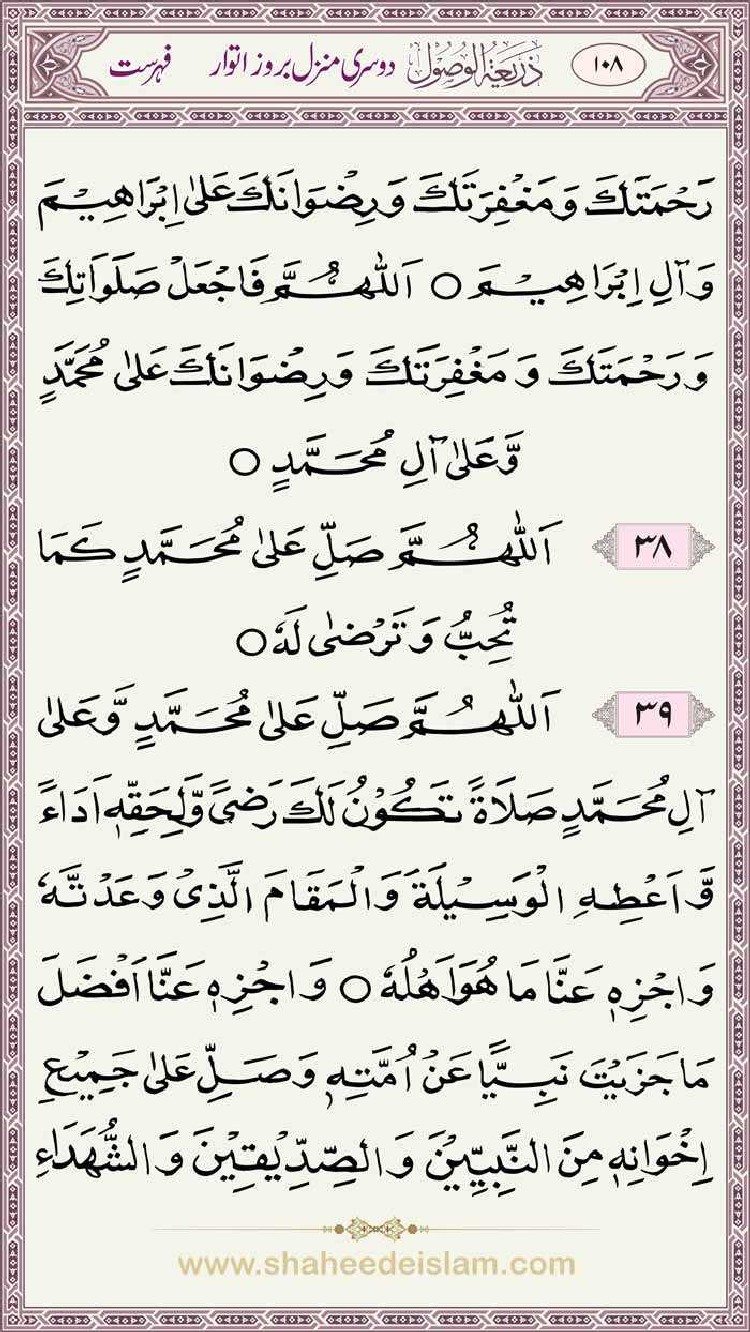 ۱۰۸ ذَرِيعَةُ الْوُصُول دوسری منزل بروز اتوار فہرست
رَحْمَتَكَ وَ مَغْفِرَتَكَ وَ رِضْوَانَكَ عَلٰى اِبْرَاهِيْمَ
وَ آلِ اِبْرَاهِيْمَ ○ اَللّٰهُمَّ فَاجْعَلْ صَلَوَاتِكَ
وَ رَحْمَتَكَ وَ مَغْفِرَتَكَ وَ رِضْوَانَكَ عَلٰى مُحَمَّدٍ
وَّ عَلٰى آلِ مُحَمَّدٍ ○
۳۸ اَللّٰهُمَّ صَلِّ عَلٰى مُحَمَّدٍ كَمَا
تُحِبُّ وَ تَرْضٰى لَهٗ ○
۳۹ اَللّٰهُمَّ صَلِّ عَلٰى مُحَمَّدٍ وَّ عَلٰى
آلِ مُحَمَّدٍ صَلَاةً تَكُوْنُ لَكَ رَضًى وَّ لِحَقِّهٖ اَدَاءً
وَّ اَعْطِهِ الْوَسِيْلَةَ وَ الْمَقَامَ الَّذِىْ وَعَدْتَّهٗ
وَ اجْزِهٖ عَنَّا مَا هُوَ اَهْلُهٗ ○ وَ اجْزِهٖ عَنَّا اَفْضَلَ
مَا جَزَيْتَ نَبِيًّا عَنْ اُمَّتِهٖ وَ صَلِّ عَلٰى جَمِيْعِ
اِخْوَانِهٖ مِنَ النَّبِيِّيْنَ وَ الصِّدِّيْقِيْنَ وَ الشُّهَدَاءِ
www.shaheedeislam.com